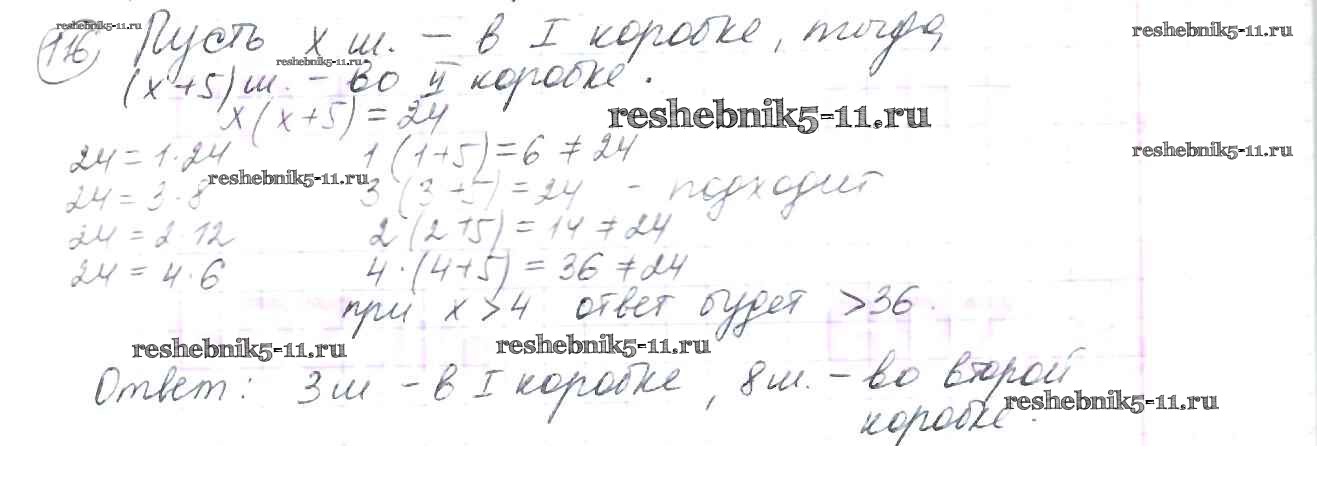 reshebnik5-11.ru
116 Пусть x ш. – в I коробке, тогда
reshebnik5-11.ru
reshebnik5-11.ru
(x+5) ш. – во II коробке.
x(x+5)=24
reshebnik5-11.ru
24=1·24 1(1+5)=6≠24
reshebnik5-11.ru
reshebnik5-11.ru
24=3·8 3(3+5)=24 – подходит
24=2·12 2(2+5)=14≠24
24=4·6 4·(4+5)=36≠24
при x>4 ответ будет >36.
reshebnik5-11.ru
reshebnik5-11.ru
Ответ: 3 ш – в I коробке, 8 ш. – во второй
reshebnik5-11.ru
коробке.